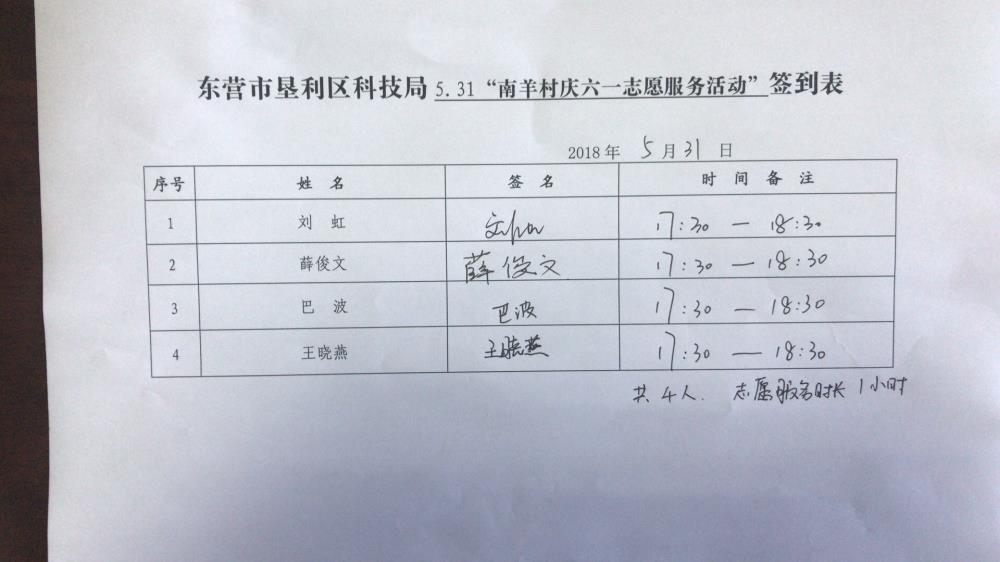 东营市垦利区科技局 5.31“南羊村庆六一志愿服务活动”签到表
2018 年 5 月 31 日
序号 姓 名 签 名 时 间 备 注
1 刘 虹 17:30 — 18:30
2 薛俊文 薛俊文 17:30 — 18:30
3 巴 波 巴波 17:30 — 18:30
4 王晓燕 王晓燕 17:30 — 18:30
共4人. 志愿服务时长1小时